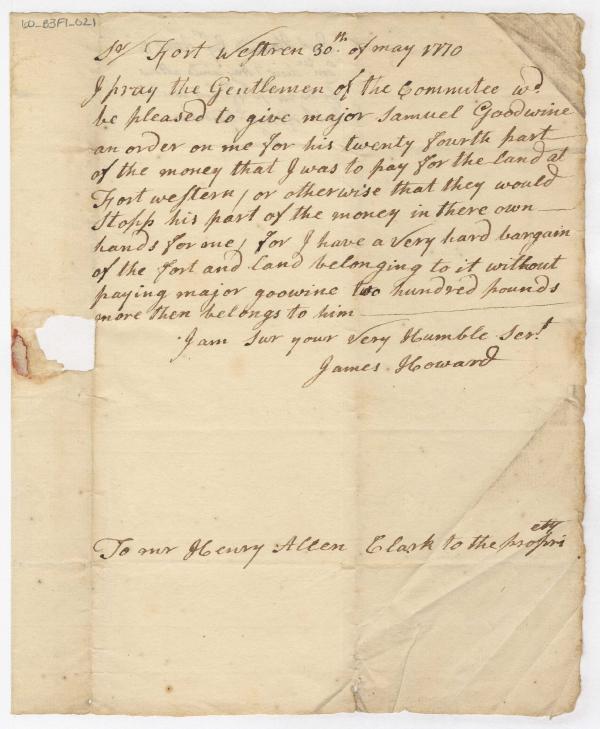 60_B3F1_021
Sr/ Fort Westren 30th. of may 1770
I pray the Gentlemen of the Commutee wd
be pleased to give major Samuel Goodwine
an order on me for his twenty fourth part
of the money that I was to pay for the land at
Fort western, or otherwise that they would
Stopp his part of the money in there own
hands for me, for I have a very hard bargain
of the Fort and Land belonging to it without
paying major goowine two hundred pounds
more then belongs to him
I am Sur your Very Humble Sert
James Howard
To mr Henry Allen Clark to the propriety